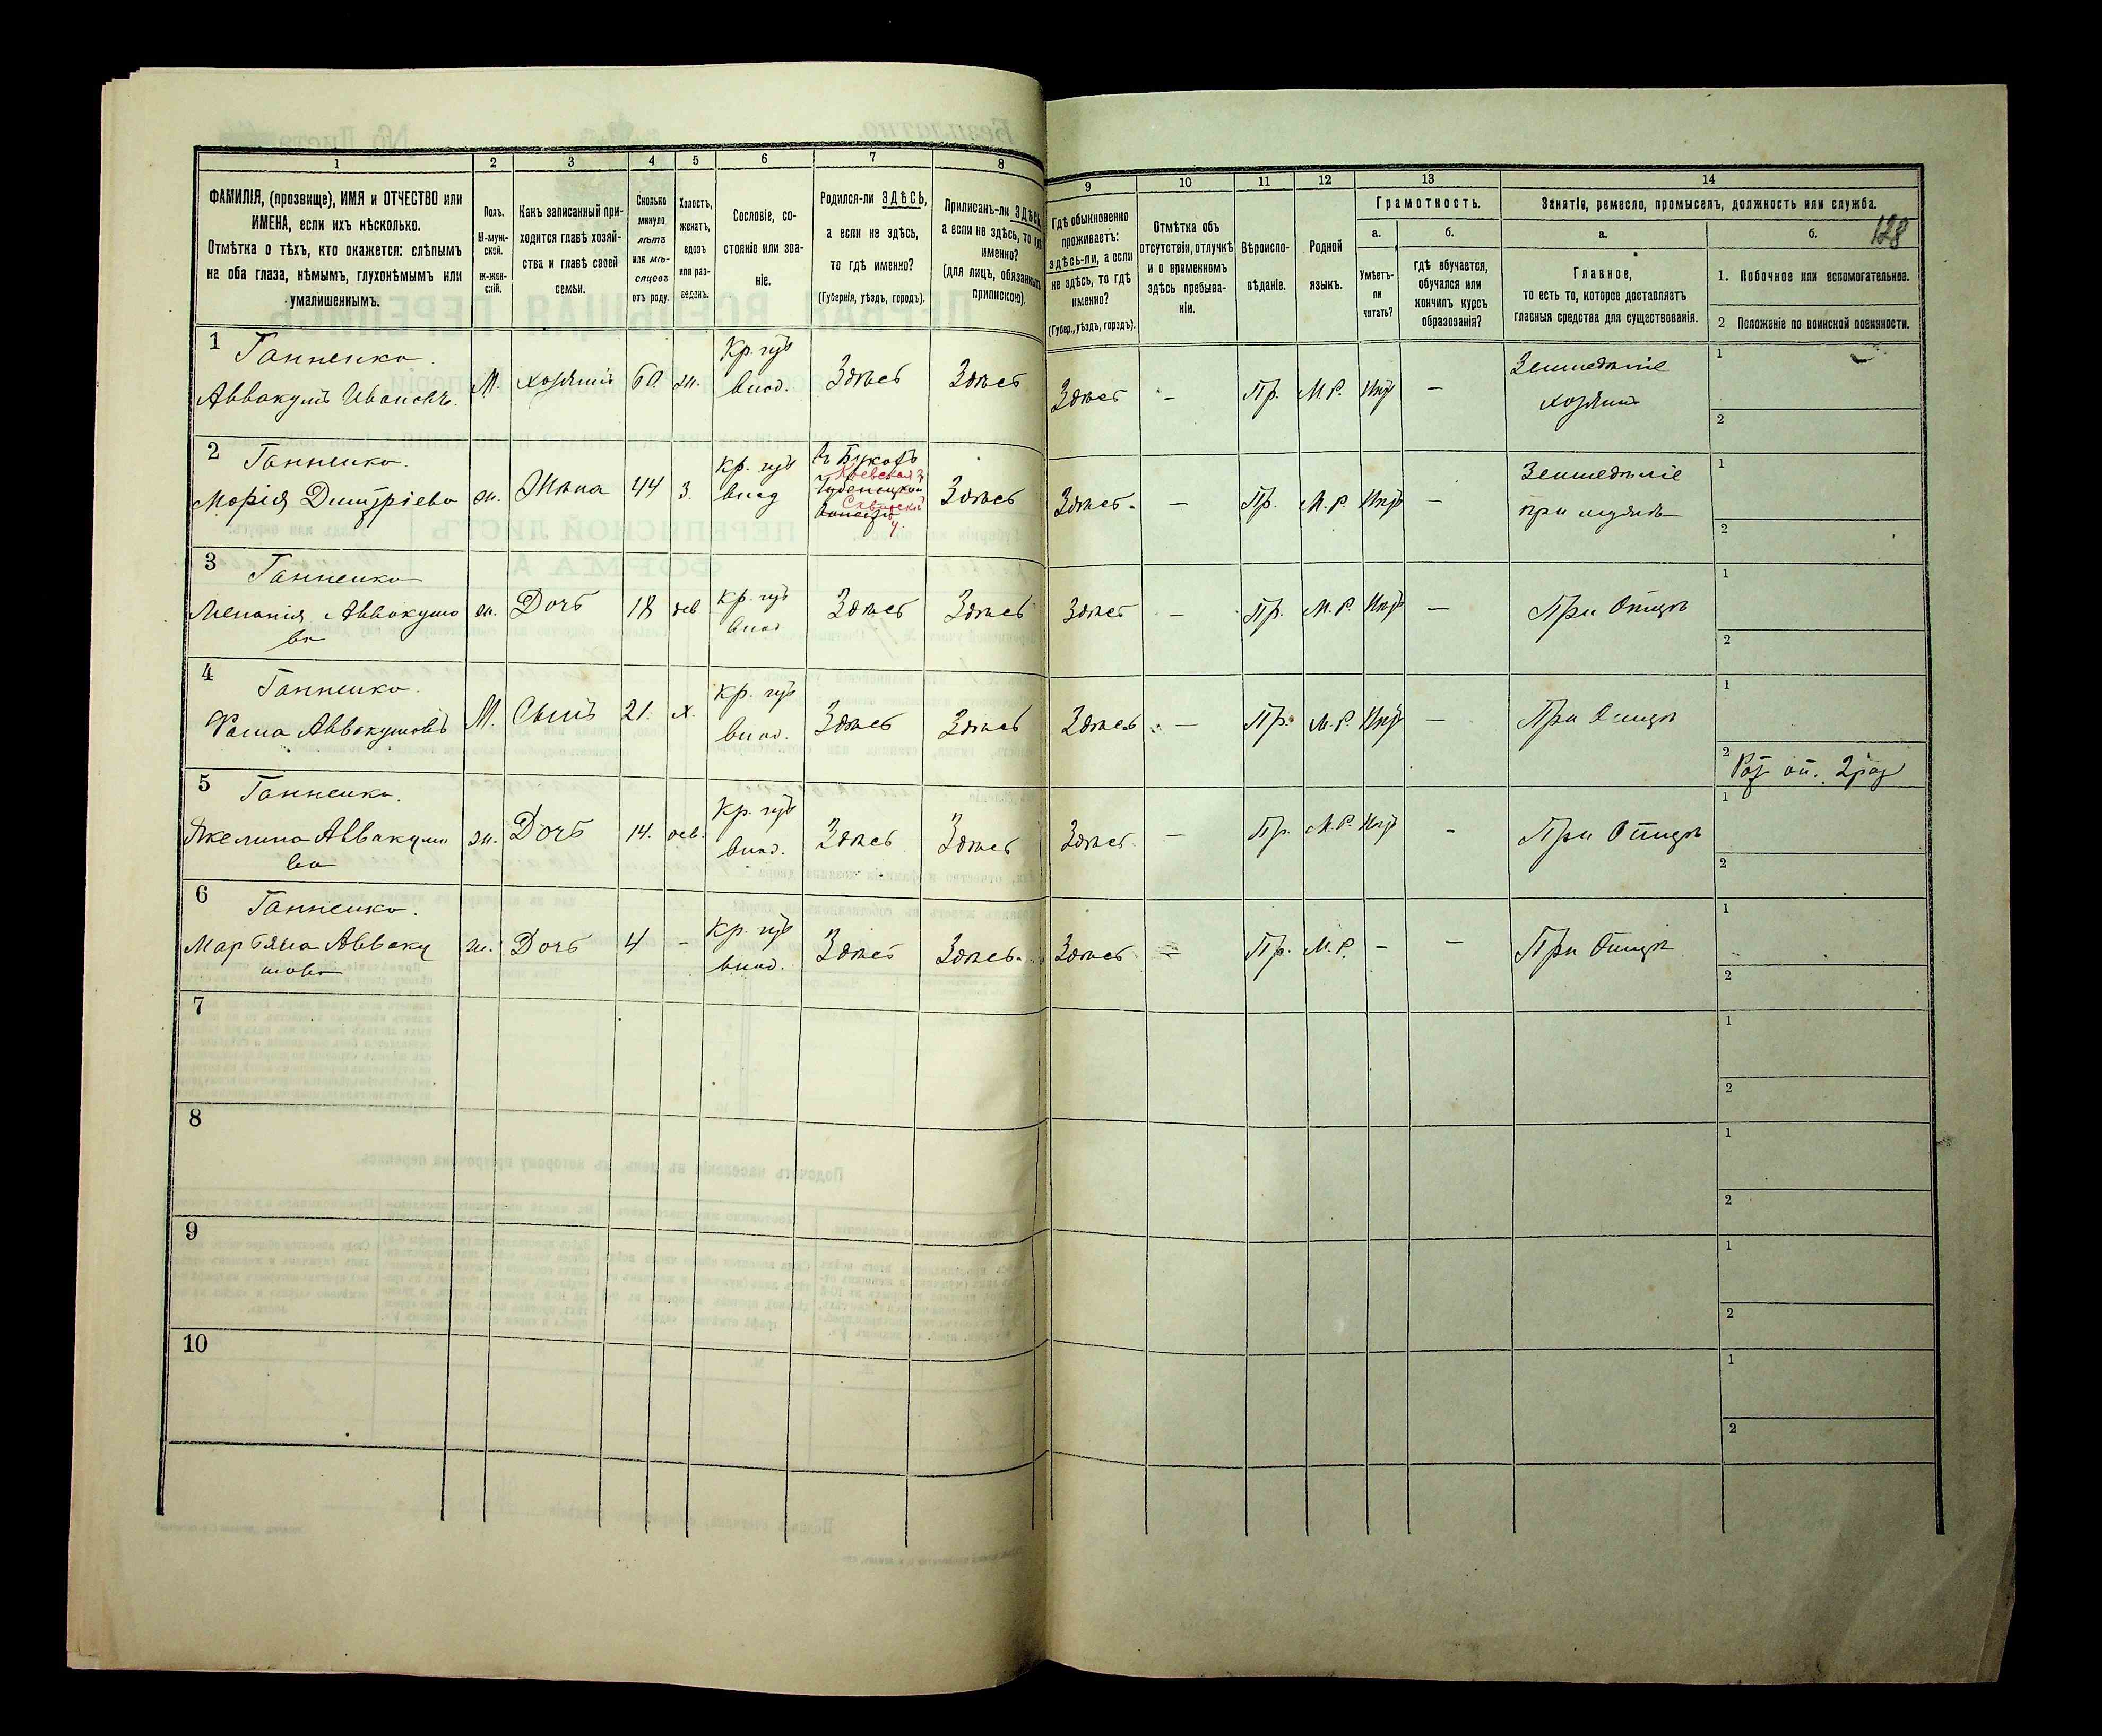 1 2 3 4 5 6 7 8
ФАМИЛІЯ, (прозвище), ИМЯ и ОТЧЕСТВО или
ИМЕНА, если ихъ нѣсколько.
Отмѣтка о тѣхъ, кто окажется: слѣпымъ
на оба глаза, нѣмымъ, глухонѣмымъ или
умалишеннымъ.
Полъ.
М-муж-
ской.
ж-жен-
скій.
Какъ записанный при-
ходится главѣ хозяй-
ства и главѣ своей
семьи.
Сколько
минуло
лѣтъ
или мѣ-
сяцевъ
отъ роду.
Холостъ,
женатъ,
вдовъ
или раз-
веденъ.
Сословіе, со-
стояніе или зва-
ніе.
Родился-ли ЗДѢСЬ,
а если не здѣсь,
то гдѣ именно?
(Губернія, уѣздъ, городъ).
Приписанъ-ли ЗДѢСЬ,
а если не здѣсь, то гдѣ
именно?
(для лицъ, обязанныхъ
припискою).
9 10 11 12 13 14
Гдѣ обыкновенно
проживаетъ:
здѣсь-ли, а если
не здѣсь, то гдѣ
именно?
(Губер., уѣздъ, городъ).
Отмѣтка объ
отсутствіи, отлучкѣ
и о временномъ
здѣсь пребыва-
ніи.
Вѣроиспо-
вѣданіе.
Родной
языкъ.
Грамотность.
а.
Умѣетъ-
ли
читать?
б.
гдѣ обучается,
обучался или
кончилъ курсъ
образованія?
Занятіе, ремесло, промыселъ, должность или служба.
а.
Главное,
то есть то, которое доставляетъ
главныя средства для существованія.
б.
128
1. Побочное или вспомогательное.
2 Положеніе по воинской повинности.
1 Ганненко.
Аввакумъ Ивановъ.
М. хозяинъ 60 ж.
Кр. губ
Здѣсь Здѣсь Здѣсь - Пр. М.Р. —
Земледѣліе
хозяинъ
1
2
2 Ганненко.
Марія Дмитріева
ж. Жена 44 З.
Кр. губ
Здѣсь Здѣсь. — Пр. М.Р. —
Земледѣліе
при мужѣ
1
2
3 Ганненко
Меланія Аввакумо
ва
ж. Дочь 18 дев
Кр. губ
Здѣсь Здѣсь Здѣсь — Пр. М.Р. —
При Отцѣ
1
2
4 Ганненко.
Фома Аввакумовъ
М. Сынъ 21. х.
Кр. губ
Здѣсь Здѣсь Здѣсь — Пр. М.Р. —
При Отцѣ
1
2
5 Ганненко.
Аввакумо
ва
ж. Дочь 14. дев.
Кр. губ
Здѣсь Здѣсь Здѣсь. — Пр. М.Р. -
При Отцѣ
1
2
6 Ганненко.
Аваку
мова
ж. Дочь 4 -
Кр. губ
Здѣсь Здѣсь. Здѣсь — Пр. М.Р. - —
При Отцѣ
1
2
7
1
2
8
1
2
9
1
2
10
1
2